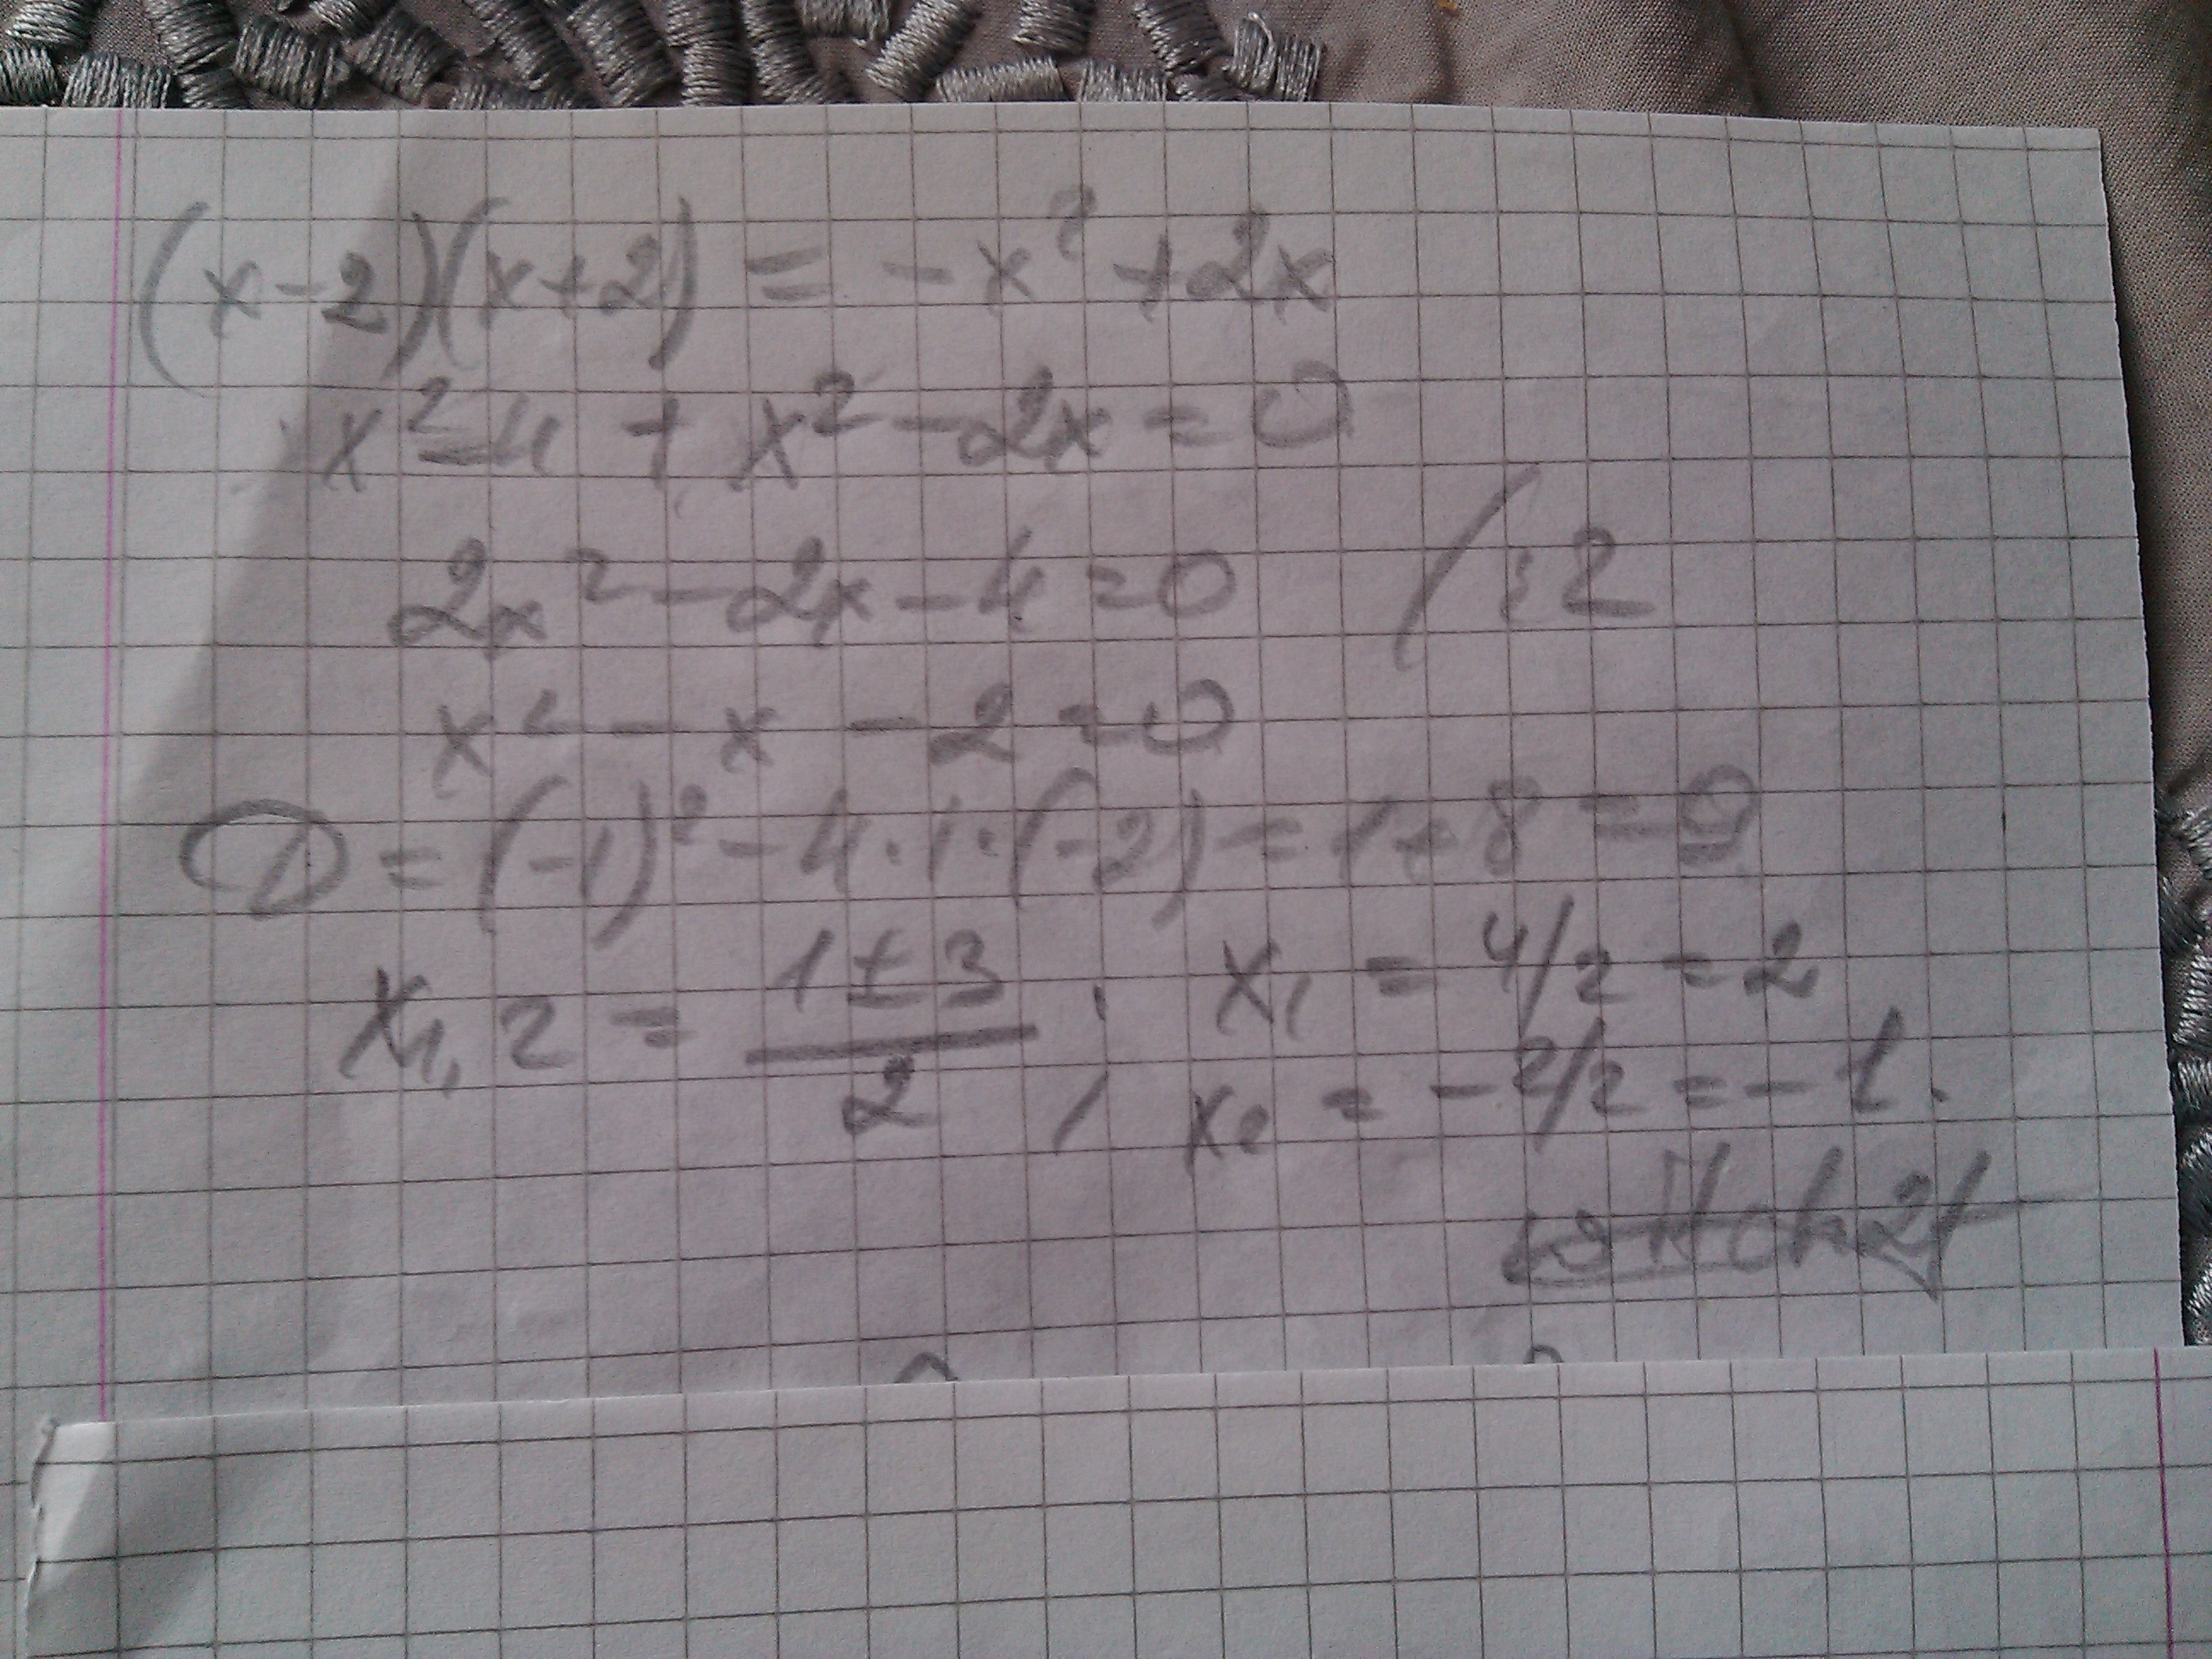 (x-2)(x+2) = -x² +2x
x²-4 + x²-2x=0
2x²-2x-4=0 /:2
x²-x-2=0
D=(-1)²-4·1·(-2)=1+8=9
x₁,₂ = (1±3)/2 ; x₁ = 4/2 = 2
x₂ = -2/2 = -1.